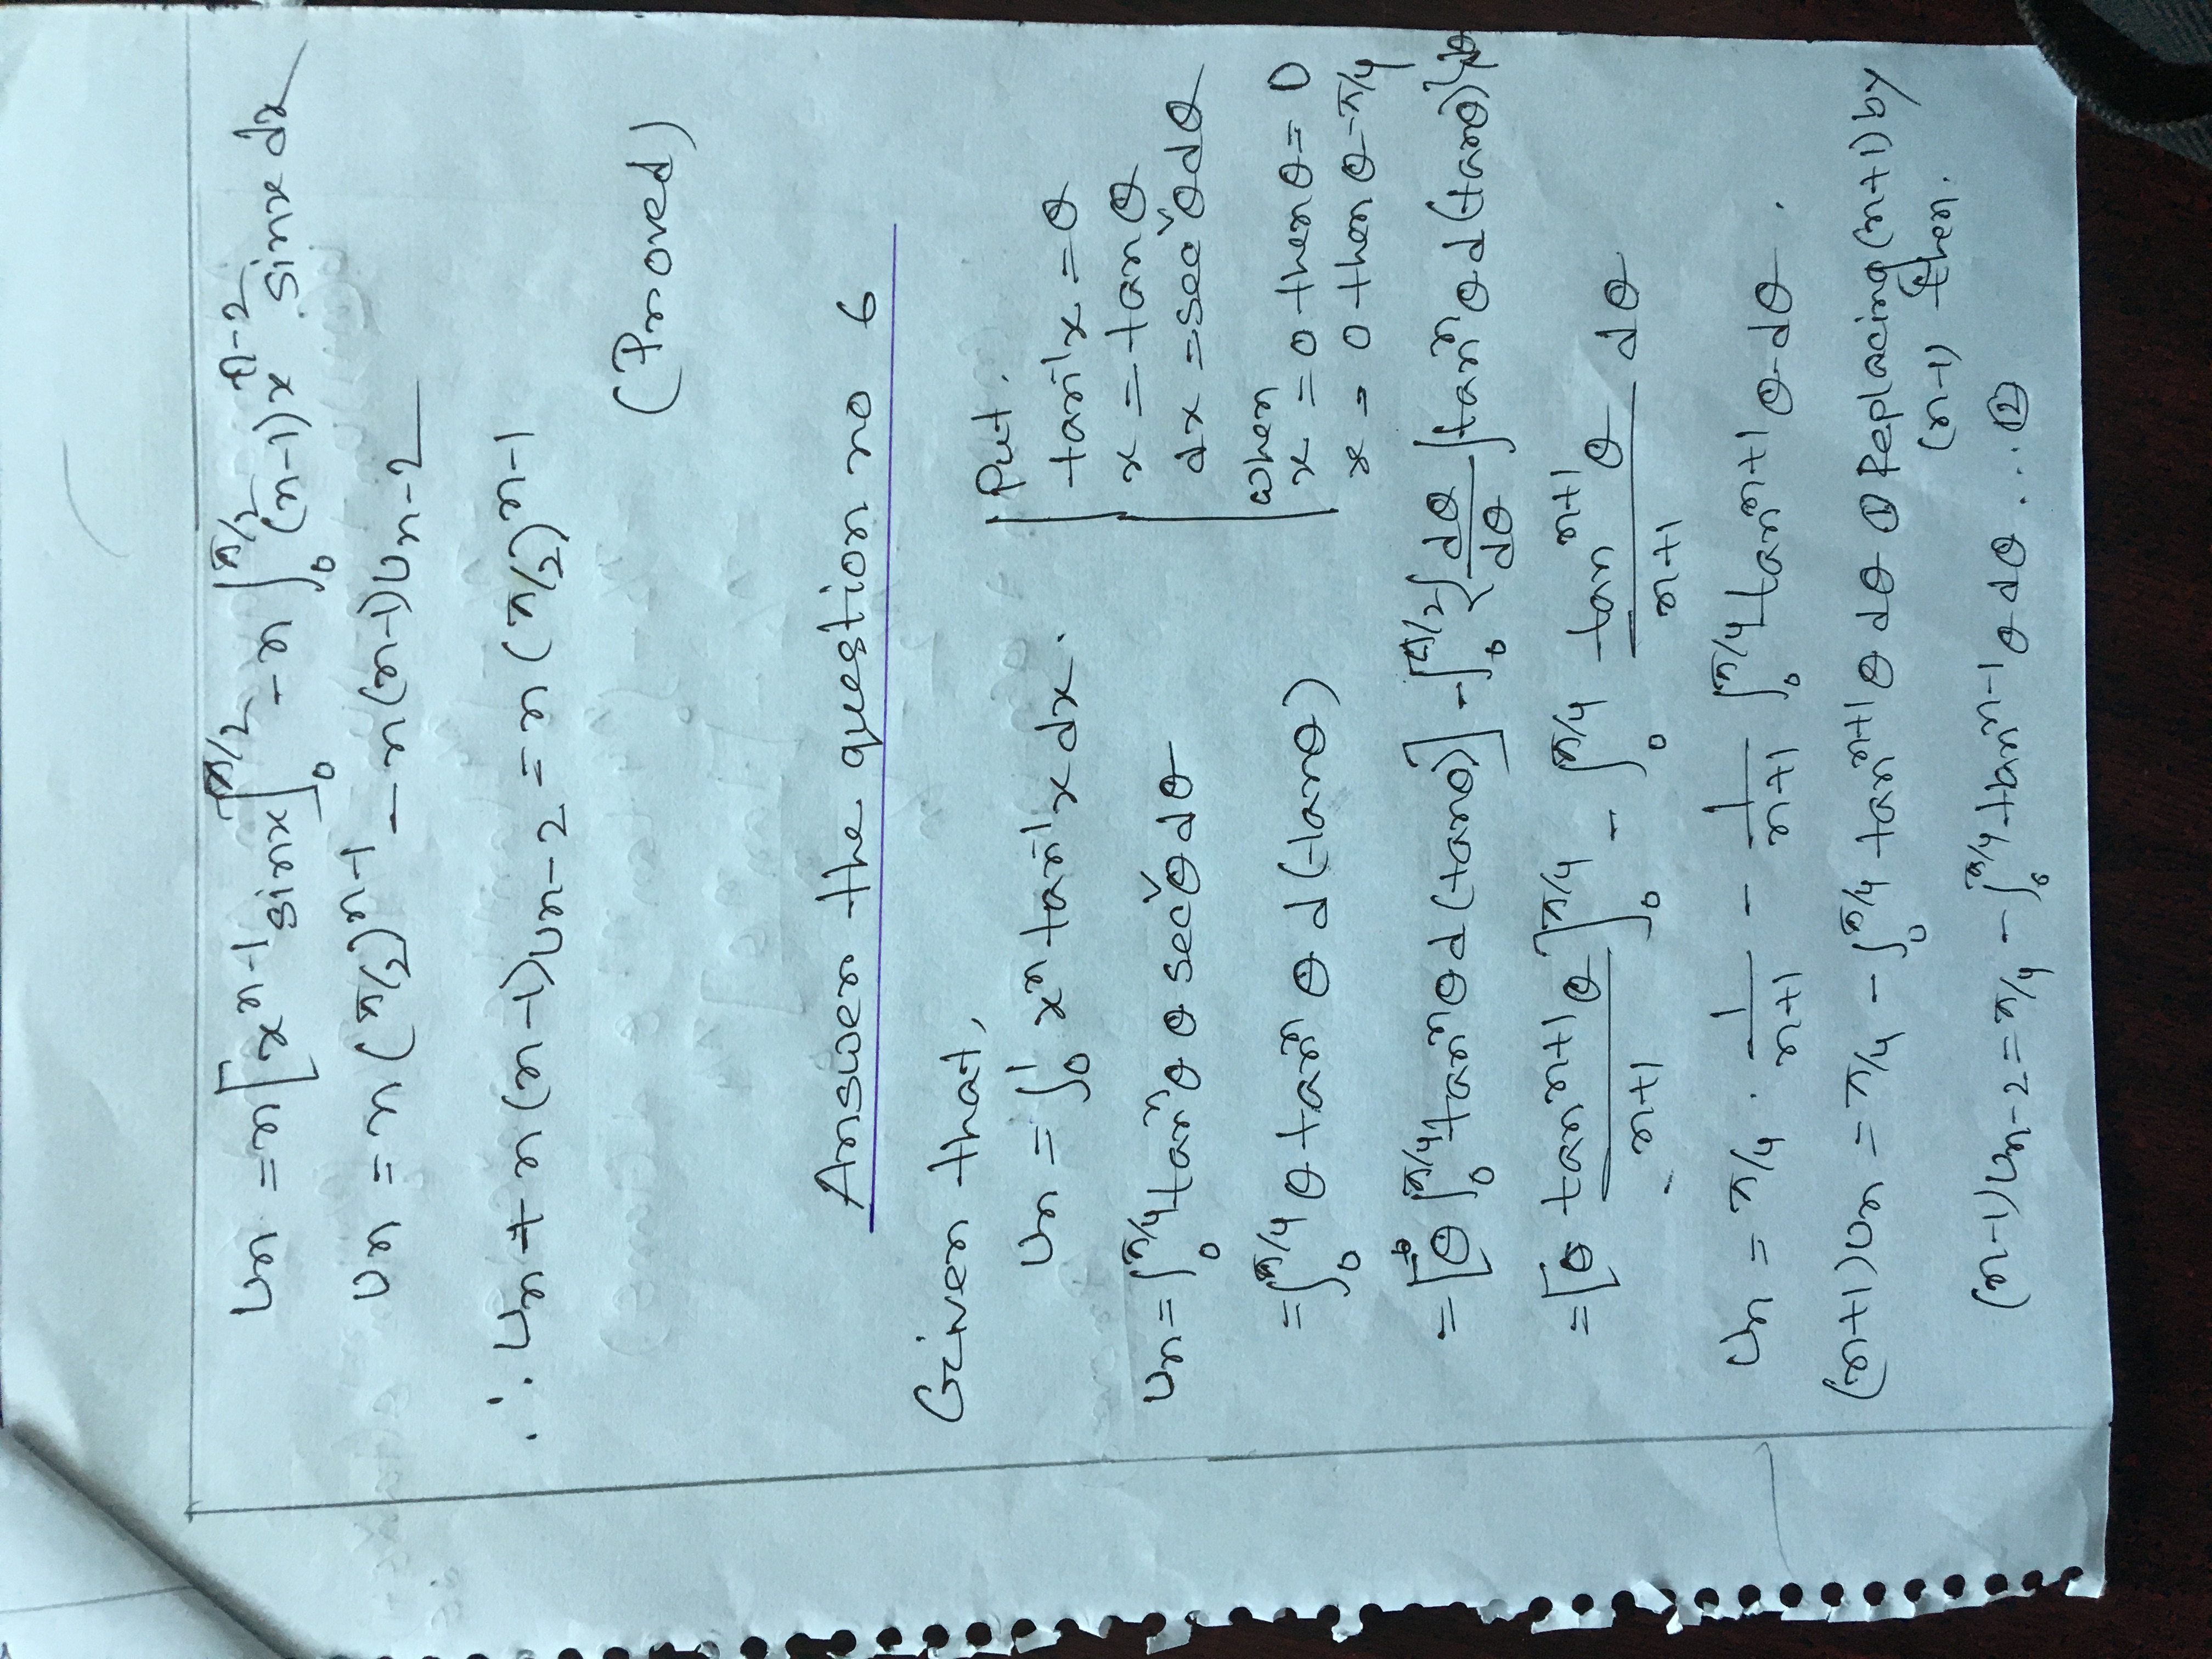 Un = n[x^{n-1} sinx]_0^{π/2} - n∫_0^{π/2} (n-1)x^{n-2} . sinx dx
Un = n(π/2)^{n-1} - n(n-1)Un-2
∴ Un + n(n-1)Un-2 = n(π/2)^{n-1}
(Proved)
Answer the question no 6
Given that,
Un = ∫_0^1 x^n tan^{-1}x dx.
Un = ∫_0^{π/4} tan^nθ θ sec^vθ dθ
= ∫_0^{π/4} θ tan^n θ d(tanθ)
Put.
tan^{-1}x = θ
x = tanθ
dx = sec^vθ dθ
when
x = 0 then θ = 0
x = 0 then θ - π/4
= [θ ∫_0^{π/4} tan^nθ d(tanθ)] - ∫_0^{π/2} {dθ/dθ ∫tan^nθ d(tanθ)} dθ
= [θ tan^{n+1}θ/n+1]_0^{π/4} - ∫_0^{π/4} tan^{n+1}θ/n+1 dθ
Un = π/4 . 1/n+1 - 1/n+1 ∫_0^{π/4} tan^{n+1}θ dθ .
(n+1)Un = π/4 - ∫_0^{π/4} tan^{n+1}θ dθ ① Replacing (n+1) by
(n-1) then.
(n-1)Un-2 = π/4 - ∫_0^{π/4} tan^{n-1}θ dθ ... ②